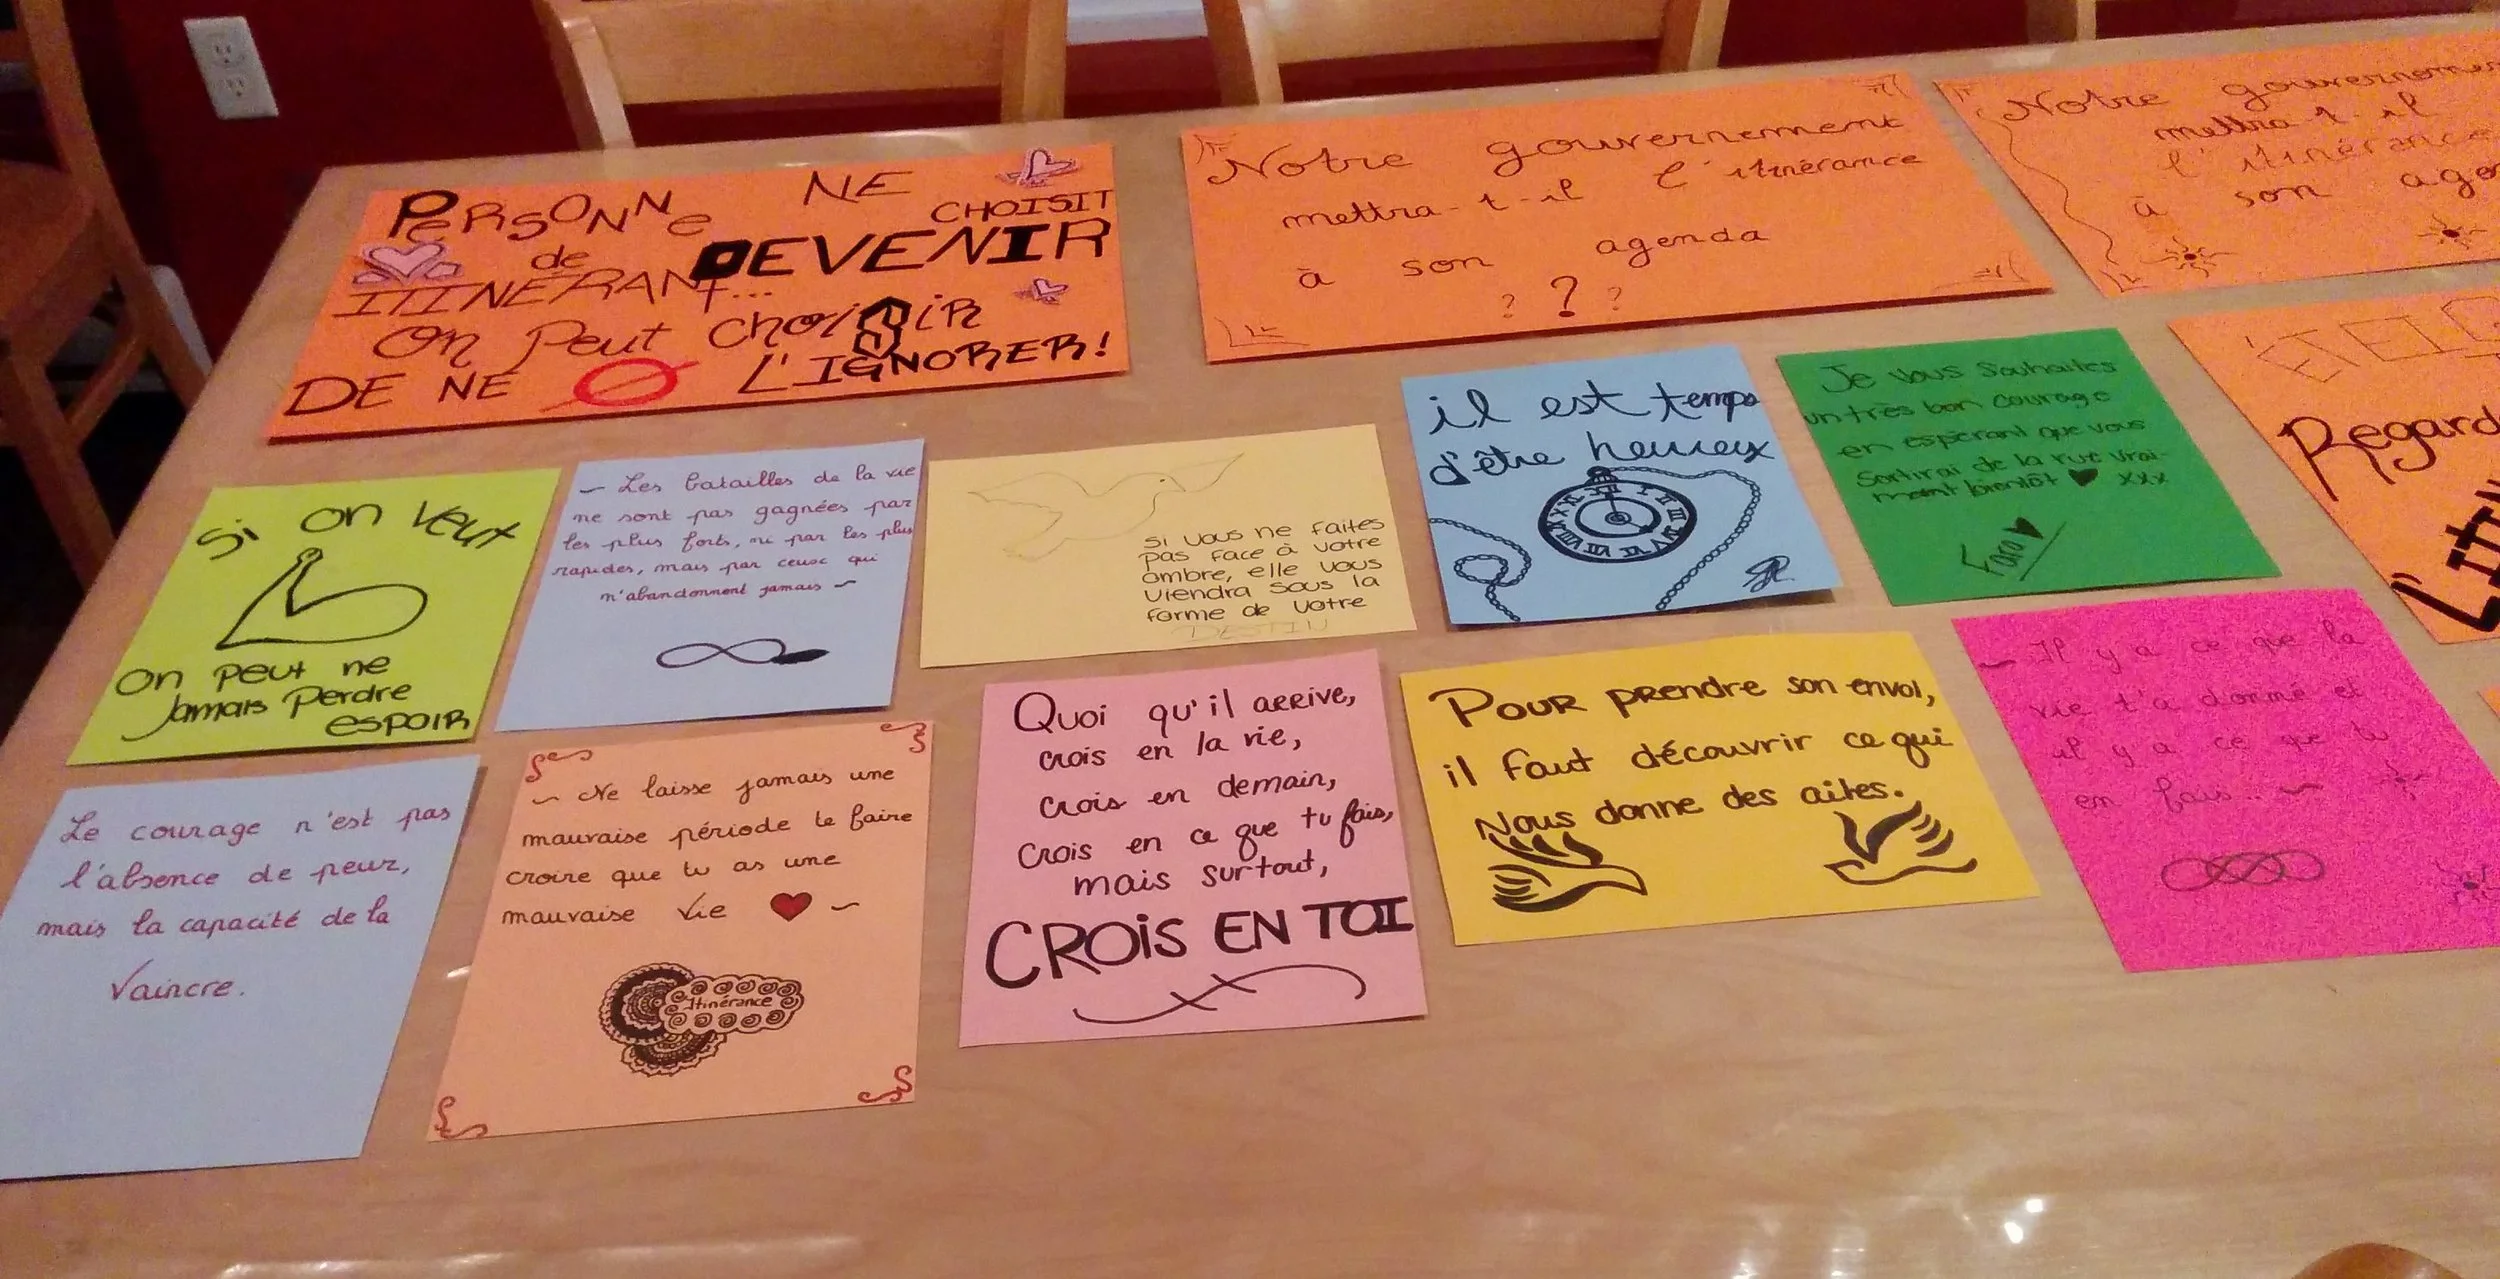 PERSONNe NE
CHOISIT
de DEVENIR
ITINÉRANT...
On Peut CHOISIR
DE NE Ø L'IGNORER!
Notre gouvernement
mettra-t-il l'itinérance
à son agenda
? ? ?
Notre
mettra-t-il
l'itinérance
à son
Si on veut
On peut ne
Jamais Perdre
ESPOIR
~ Les batailles de la vie
ne sont pas gagnées par
les plus forts, ni par les plus
rapides, mais par ceux qui
n'abandonnent jamais ~
Si vous ne faites
pas face à votre
ombre, elle vous
viendra sous la
forme de votre
DESTIN
il est temps
d'être heureux
XII I II III IV V VI VII VIII IX X XI
Je vous souhaites
un très bon courage
en espérant que vous
Sortirai de la rue vrai-
ment bientôt ♥ xxx
Regard
L'itin
Le courage n'est pas
l'absence de peur,
mais la capacité de la
Vaincre.
~ Ne laisse jamais une
mauvaise période te faire
croire que tu as une
mauvaise vie ♥ ~
Itinérance
Quoi qu'il arrive,
crois en la vie,
crois en demain,
crois en ce que tu fais,
mais surtout,
CROIS EN TOI
Pour prendre son envol,
il faut découvrir ce qui
Nous donne des ailes.
~ Il y a ce que la
vie t'a donné et
il y a ce que tu
en fais.. ~